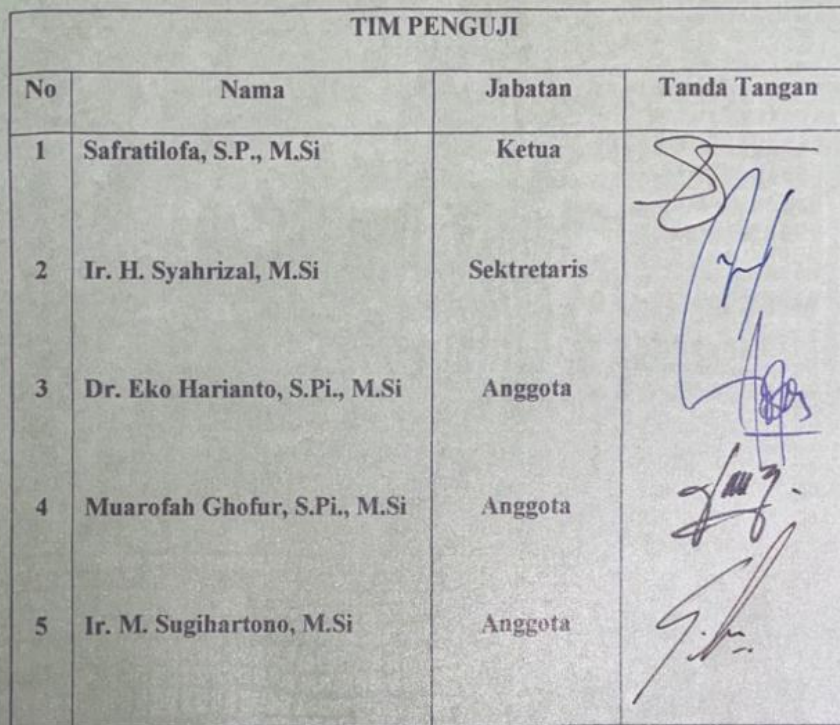 TIM PENGUJI
No Nama Jabatan Tanda Tangan
1 Safratilofa, S.P., M.Si Ketua
2 Ir. H. Syahrizal, M.Si Sektretaris
3 Dr. Eko Harianto, S.Pi., M.Si Anggota
4 Muarofah Ghofur, S.Pi., M.Si Anggota
5 Ir. M. Sugihartono, M.Si Anggota